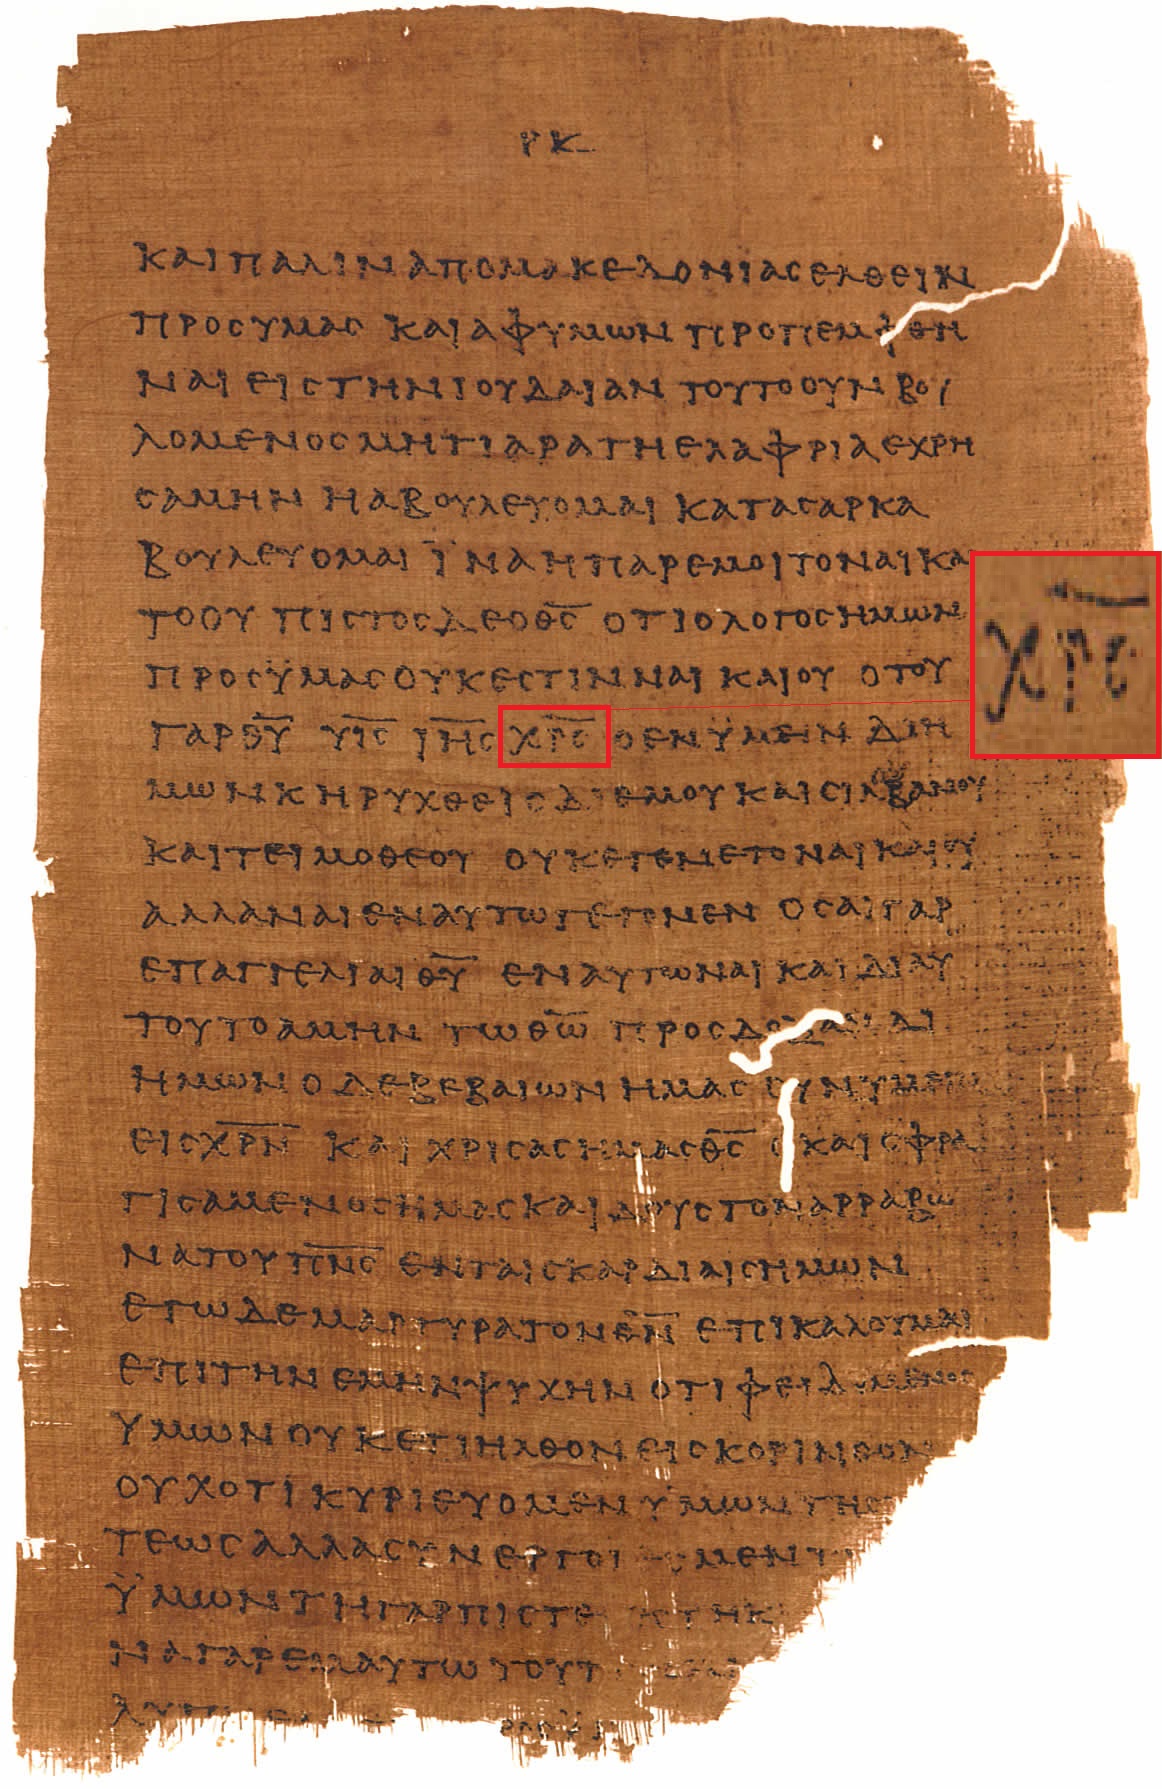 ρκ
ΚΑΙΠΑΛΙΝΑΠΟΜΑΚΕΔΟΝΙΑСΕΛΘΕΙΝ
ΠΡΟСΥΜΑС ΚΑΙΑΦΥΜΩΝ ΠΡΟΠΕΜΦΘΗ
ΝΑΙ ΕΙСΤΗΝΙΟΥΔΑΙΑΝ ΤΟΥΤΟΟΥΝ ΒΟΥ
ΛΟΜΕΝΟСΜΗΤΙΑΡΑΤΗΕΛΑΦΡΙΑΕΧΡΗ
СΑΜΗΝ ΗΑΒΟΥΛΕΥΟΜΑΙ ΚΑΤΑСΑΡΚΑ
ΒΟΥΛΕΥΟΜΑΙ ΪΝΑΗΠΑΡΕΜΟΙΤΟΝΑΙΚΑΙ
ΤΟΟΥ ΠΙСΤΟСΔΕΟΘ̅С̅ ΟΤΙΟΛΟΓΟСΗΜΩΝ
ΠΡΟСΫΜΑСΟΥΚΕСΤΙΝΝΑΙ ΚΑΙΟΥ ΟΤΟΥ
ΓΑΡΘ̅Υ̅ Υ̅Ι̅С̅ Ι̅Η̅С̅ Χ̅Ρ̅С̅ ΟΕΝΫΜΕΙΝ ΔΙΗ
ΜΩΝΚΗΡΥΧΘΕΙС ΔΙΕΜΟΥ ΚΑΙСΙΛΒΑΝΟΥ
ΚΑΙΤΕΙΜΟΘΕΟΥ ΟΥΚΕΓΕΝΕΤΟΝΑΙΚΑΙΟΥ
ΑΛΛΑΝΑΙΕΝΑΥΤΩΓΕΓΟΝΕΝ ΟСΑΙΓΑΡ
ΕΠΑΓΓΕΛΙΑΙΘ̅Υ̅ ΕΝΑΥΤΩΝΑΙ ΚΑΙ ΔΙΑΥ
ΤΟΥΤΟΑΜΗΝ ΤΩΘ̅Ω̅ ΠΡΟСΔΟΞΑΝ ΔΙ
ΗΜΩΝ Ο ΔΕΒΕΒΑΙΩΝ ΗΜΑС СΥΝΫΜΕΙΝ
ΕΙСΧ̅Ρ̅Ν̅ ΚΑΙ ΧΡΙСΑСΗΜΑСΘ̅С̅ Ο ΚΑΙСΦΡΑ
ΓΙСΑΜΕΝΟСΗΜΑСΚΑΙ ΔΟΥСΤΟΝΑΡΡΑΒΩ
ΝΑΤΟΥΠ̅Ν̅С̅ ΕΝΤΑΙСΚΑΡΔΙΑΙСΗΜΩΝ
ΕΓΩΔΕΜΑΡΤΥΡΑΤΟΝΘ̅Ν̅ ΕΠΙΚΑΛΟΥΜΑΙ
ΕΠΙΤΗΝΕΜΗΝΨΥΧΗΝ ΟΤΙ ΦΕΙΔΟΜΕΝΟС
ΥΜΩΝΟΥΚΕΤΙΗΛΘΟΝΕΙСΚΟΡΙΝΘΟΝ
ΟΥΧΟΤΙ ΚΥΡΙΕΥΟΜΕΝ ΫΜΩΝΤΗС
ΤΕΩСΑΛΛΑСΥΝΕΡΓΟΙ ΜΕΝΤ
ΫΜΩΝΤΗΓΑΡΠΙСΤΕ СΤΗΚ
ΝΑΓΑΡΕΜΑΥΤΩ ΤΟΥΤ
ΛΥΠ
Χ̅Ρ̅С̅